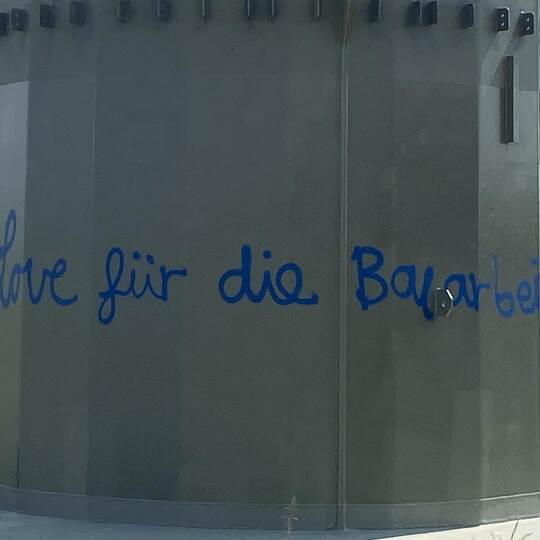 love für die Bauarbei